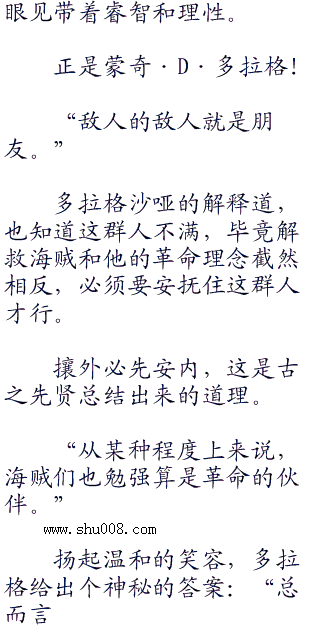 眼见带着睿智和理性。
正是蒙奇·D·多拉格！
“敌人的敌人就是朋
友。”
多拉格沙哑的解释道，
也知道这群人不满，毕竟解
救海贼和他的革命理念截然
相反，必须要安抚住这群人
才行。
攘外必先安内，这是古
之先贤总结出来的道理。
“从某种程度上来说，
海贼们也勉强算是革命的伙
伴。”
www.shu008.com
扬起温和的笑容，多拉
格给出个神秘的答案：“总
而言